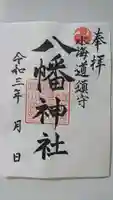 奉拝
北海道鎮守
八幡神社
令和三年 月 日